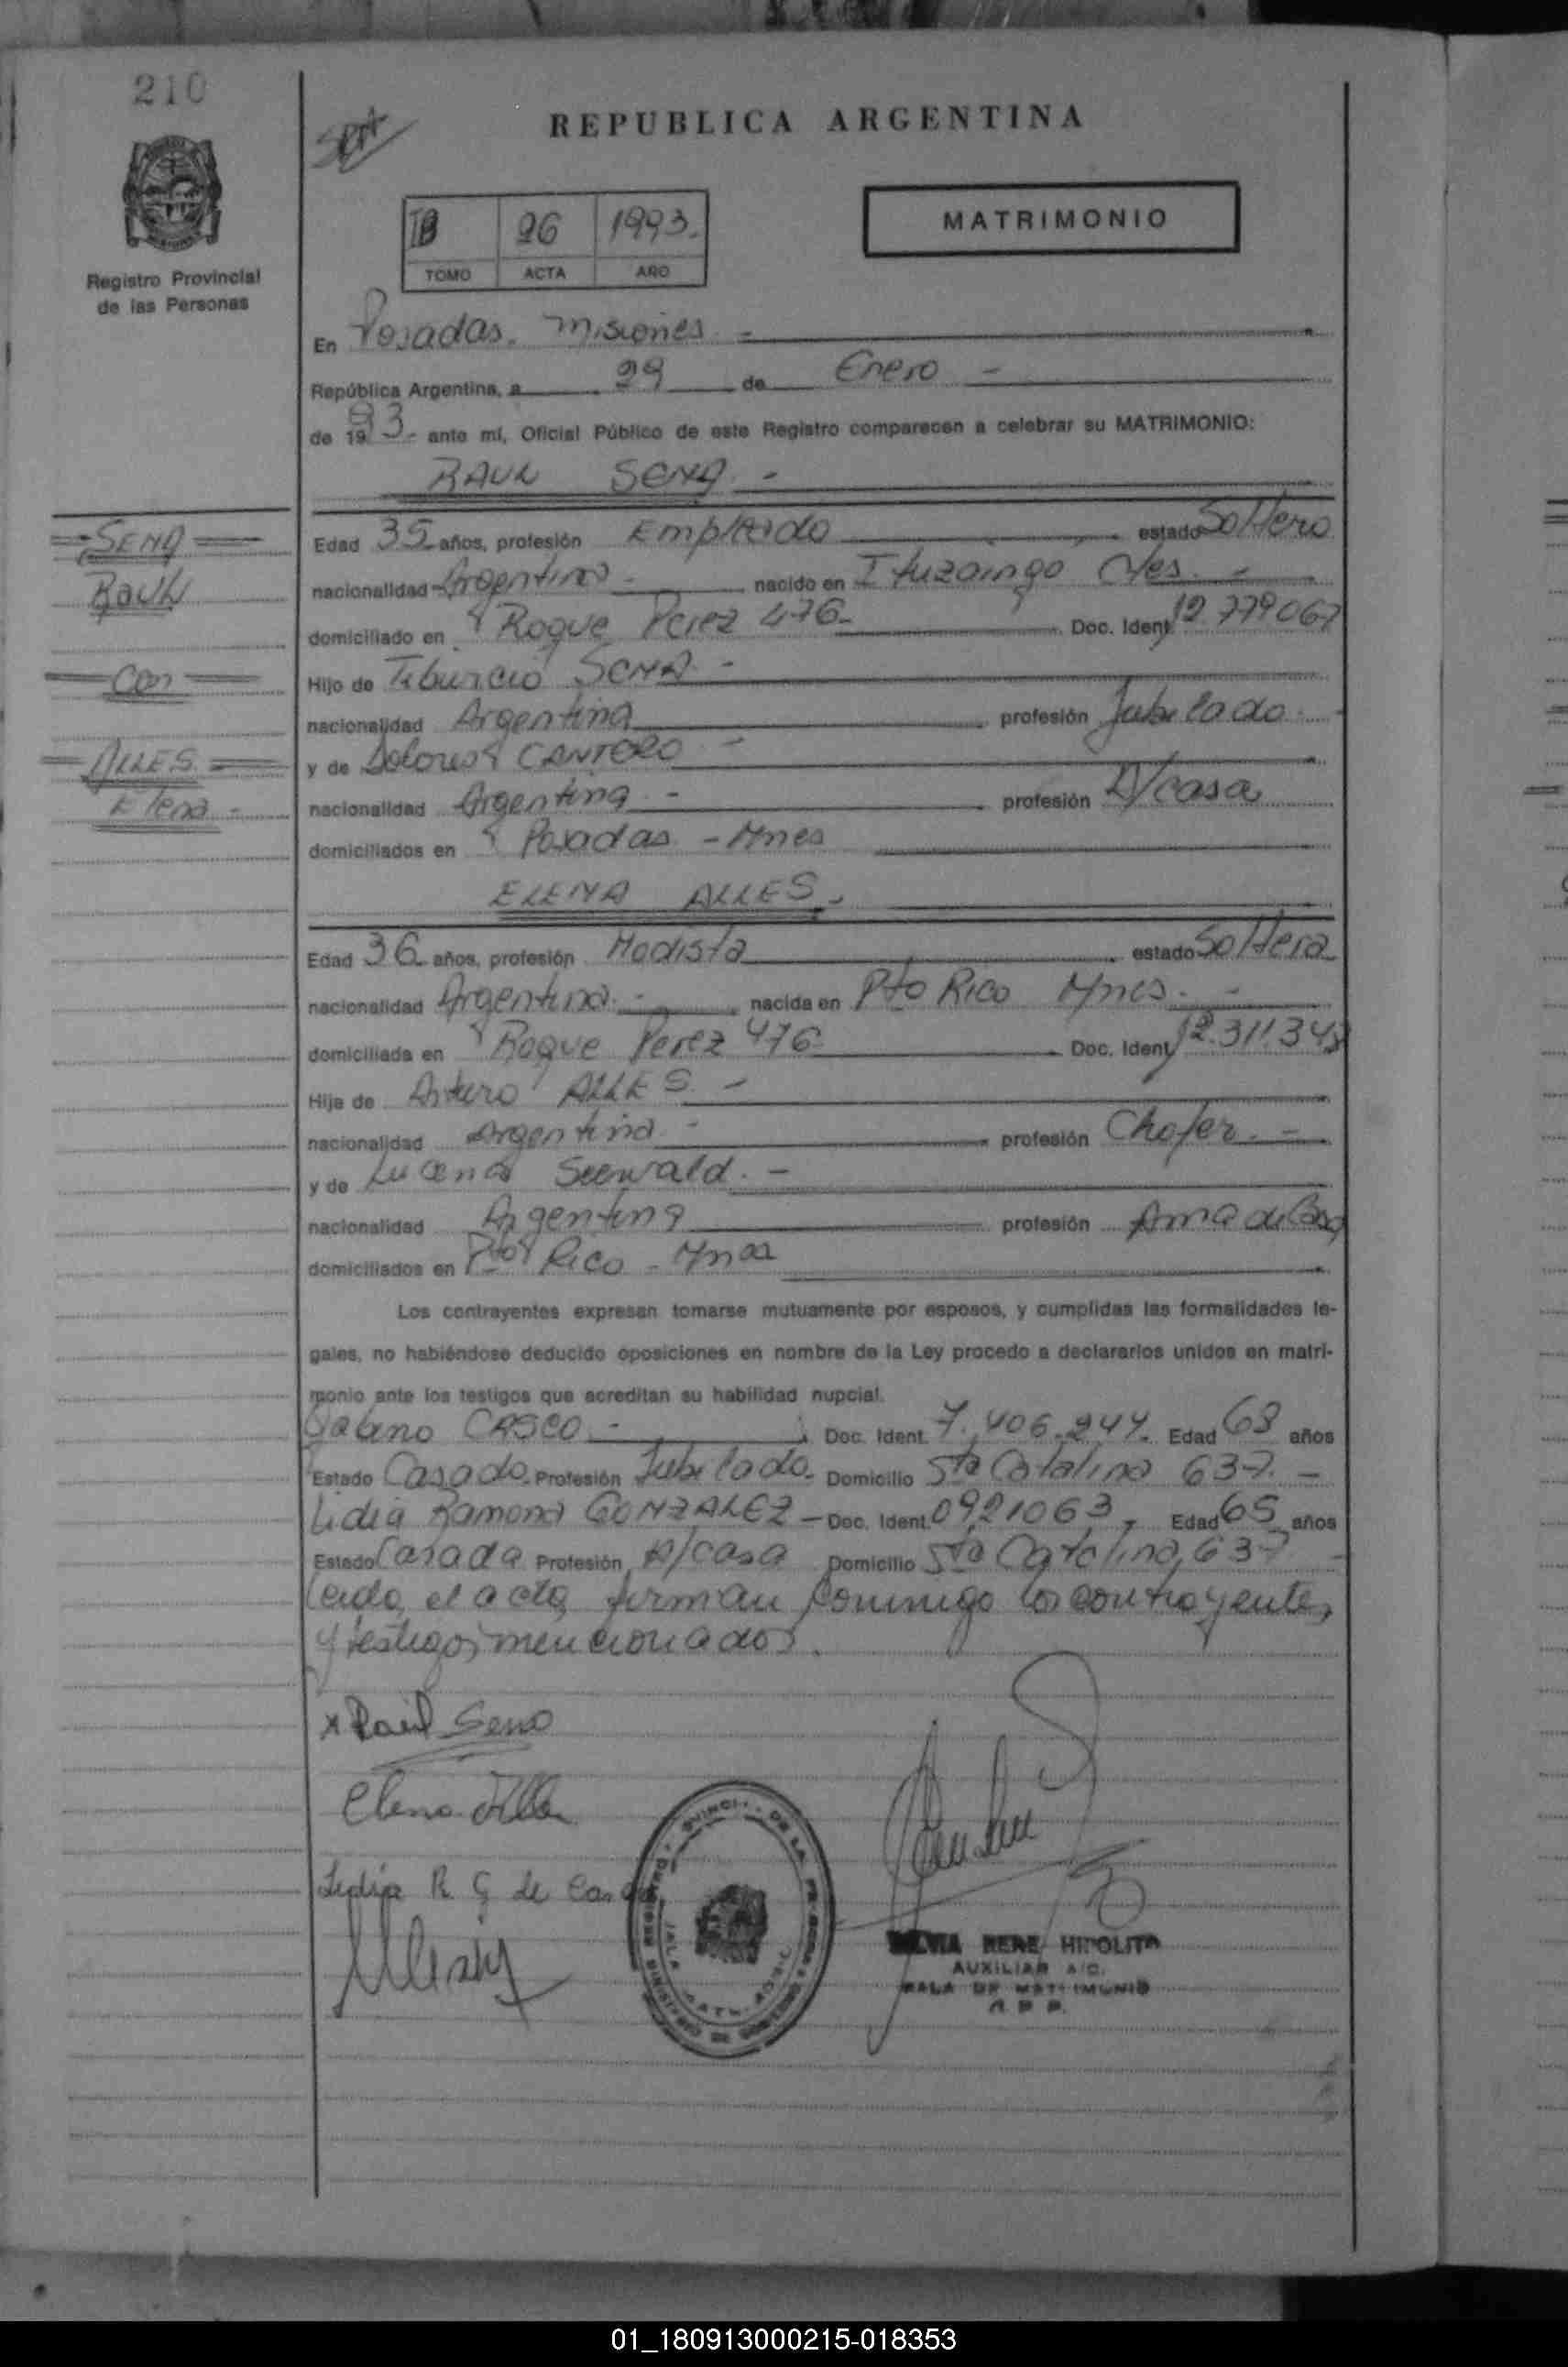 210
REPUBLICA ARGENTINA
MATRIMONIO
Registro Provincial
de las Personas
IB 96 1993.
TOMO ACTA AÑO
En Posadas. Misiones -
República Argentina, a 29 de Enero -
de 1993.- ante mí, Oficial Público de este Registro comparecen a celebrar su MATRIMONIO:
RAUL SENA. -
SENA
Raul
Con
ALLES.
Elena -
Edad 35 años, profesión Empleado estado Soltero
nacionalidad Argentina - nacido en Ituzaingo Ctes. -
domiciliado en Roque Perez 476- Doc. Ident. 12.779067
Hijo de Tiburcio SENA -
nacionalidad Argentina profesión Jubilado.
y de Dolores CANTERO -
nacionalidad Argentina - profesión A/casa
domiciliados en Posadas - Mnes
ELENA ALLES.
Edad 36 años, profesión Modista estado Soltera
nacionalidad Argentina - nacida en Pto Rico Mnes. -
domiciliada en Roque Perez 476- Doc. Ident. 12.311.348
Hija de Arturo ALLES. -
nacionalidad Argentina - profesión Chofer. -
y de Seewald. -
nacionalidad Argentina profesión Ama de Casa
domiciliados en Pto Rico - Mnes
Los contrayentes expresan tomarse mutuamente por esposos, y cumplidas las formalidades le-
gales, no habiéndose deducido oposiciones en nombre de la Ley procedo a declararlos unidos en matri-
monio ante los testigos que acreditan su habilidad nupcial.
CASCO - Doc. Ident. 7.406.247. Edad 63 años
Estado Casado. Profesión Jubilado. Domicilio Sta Catalina 637. -
Lidia Ramona GONZALEZ - Doc. Ident. 0921063, Edad 65 años
Estado Casada Profesión A/casa Domicilio Sta Catalina, 637 -
Leida el acta firman conmigo los contrayentes
y testigos mencionados.
x Raul Sena
Elena Alles
Lidia R. G de Casco
RENE HIPOLITO
AUXILIAR A/C.
SALA DE MATRIMONIO
01_180913000215-018353